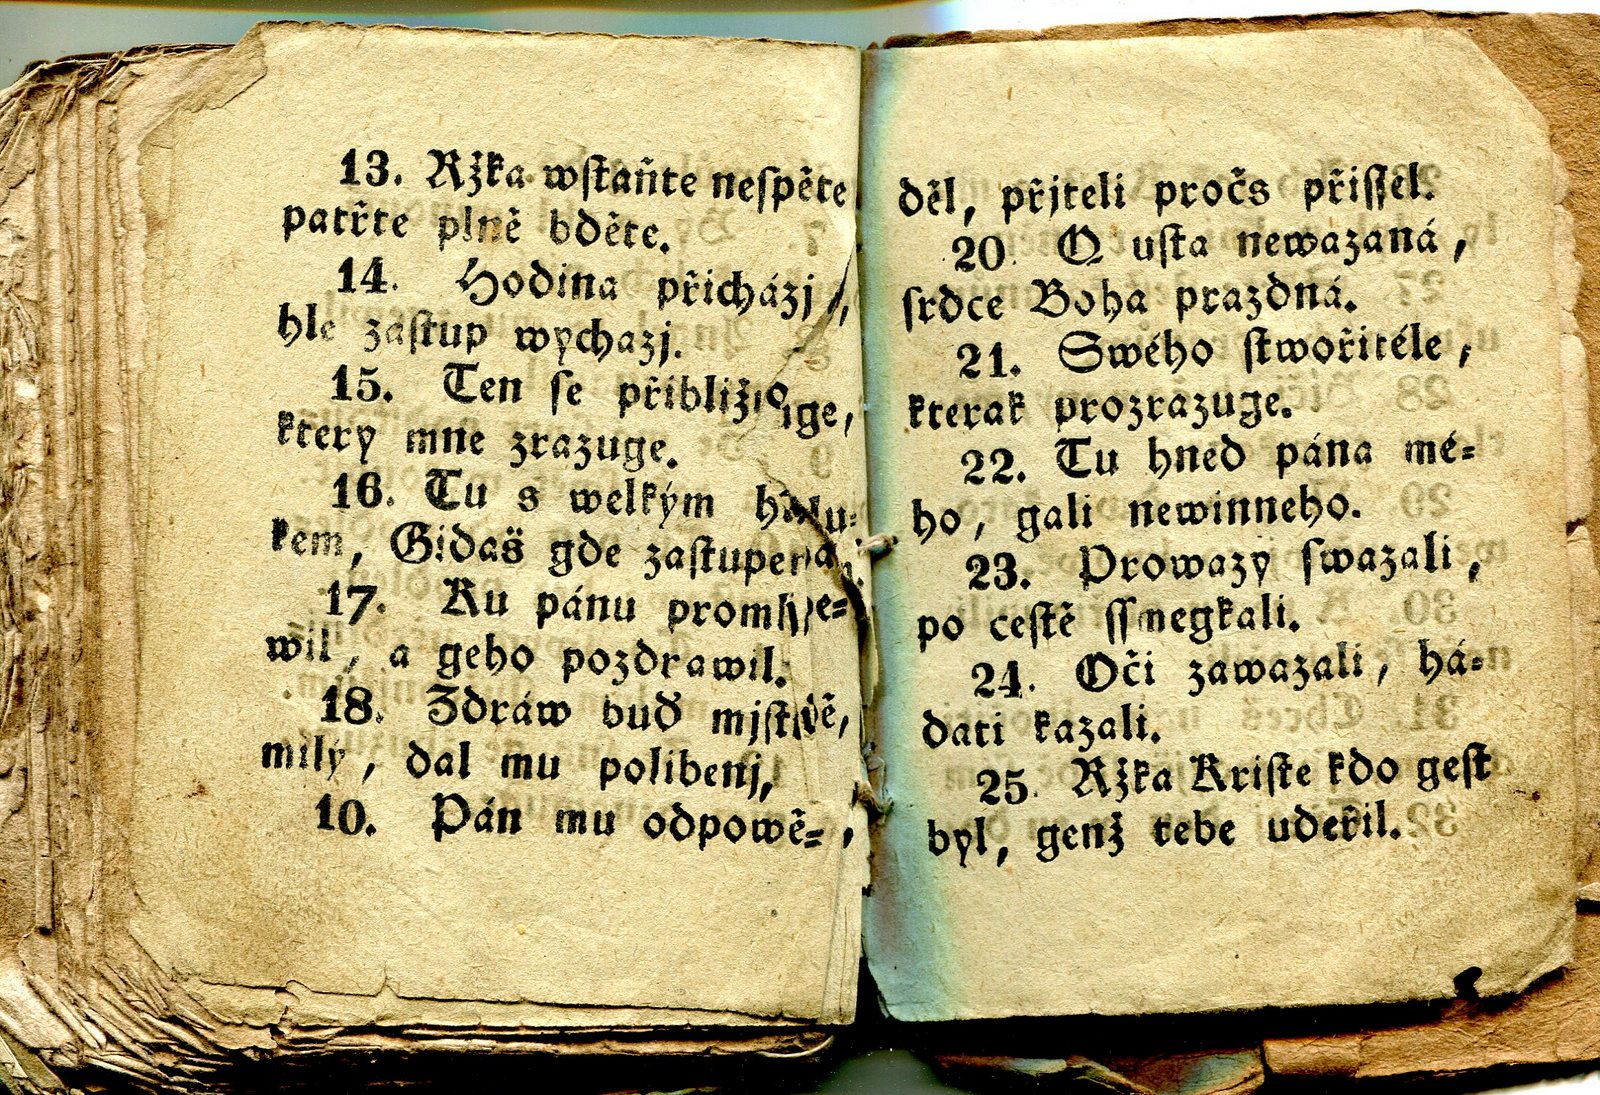 13. Ržka wstaňte nespěte
patřte plně bděte.
14. Hodina přicházj,
hle zastup wychazj.
15. Ten se přibližuge,
ktery mne zrazuge.
16. Tu s welkým hluku=
kem, Gidaš gde zastupem.
17. Ku pánu promluwe=
wil, a geho pozdrawil.
18. Zdráw buď mjstře,
mily, dal mu polibenj,
10. Pán mu odpowě=
děl, přjteli pročs přissel.
20. O usta newazaná,
srdce Boha prazdná.
21. Swého stwořitéle,
kterak prozrazuge.
22. Tu hned pána mé=
ho, gali newinneho.
23. Prowazy swazali,
po cestě ssmegkali.
24. Oči zawazali, há=
dati kazali.
25. Ržka Kriste kdo gest
byl, genž tebe udeřil.